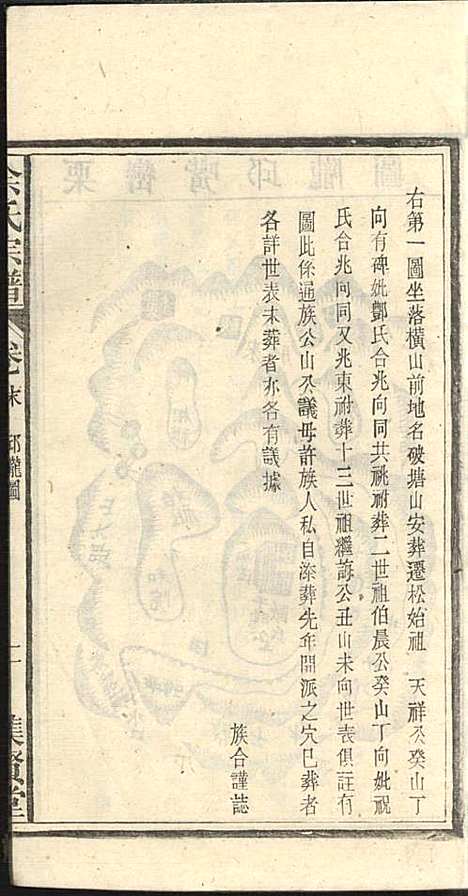 右第一圖坐落橫山前地名破塘山安葬遷松始祖 天祥公癸山丁
向有碑妣鄷氏合兆向同共祧祔葬二世祖伯晨公癸山丁向妣祝
氏合兆向同又兆東祔葬十三世祖繼誨公丑山未向世表俱註有
圖此係通族公山公議毋許族人私自滦葬先年開派之穴已葬者
各詳世表未葬者亦各有議據
族合謹誌
氏宗譜
卷末 邱隴圖
集賢堂
圖隴邱嘴 栗